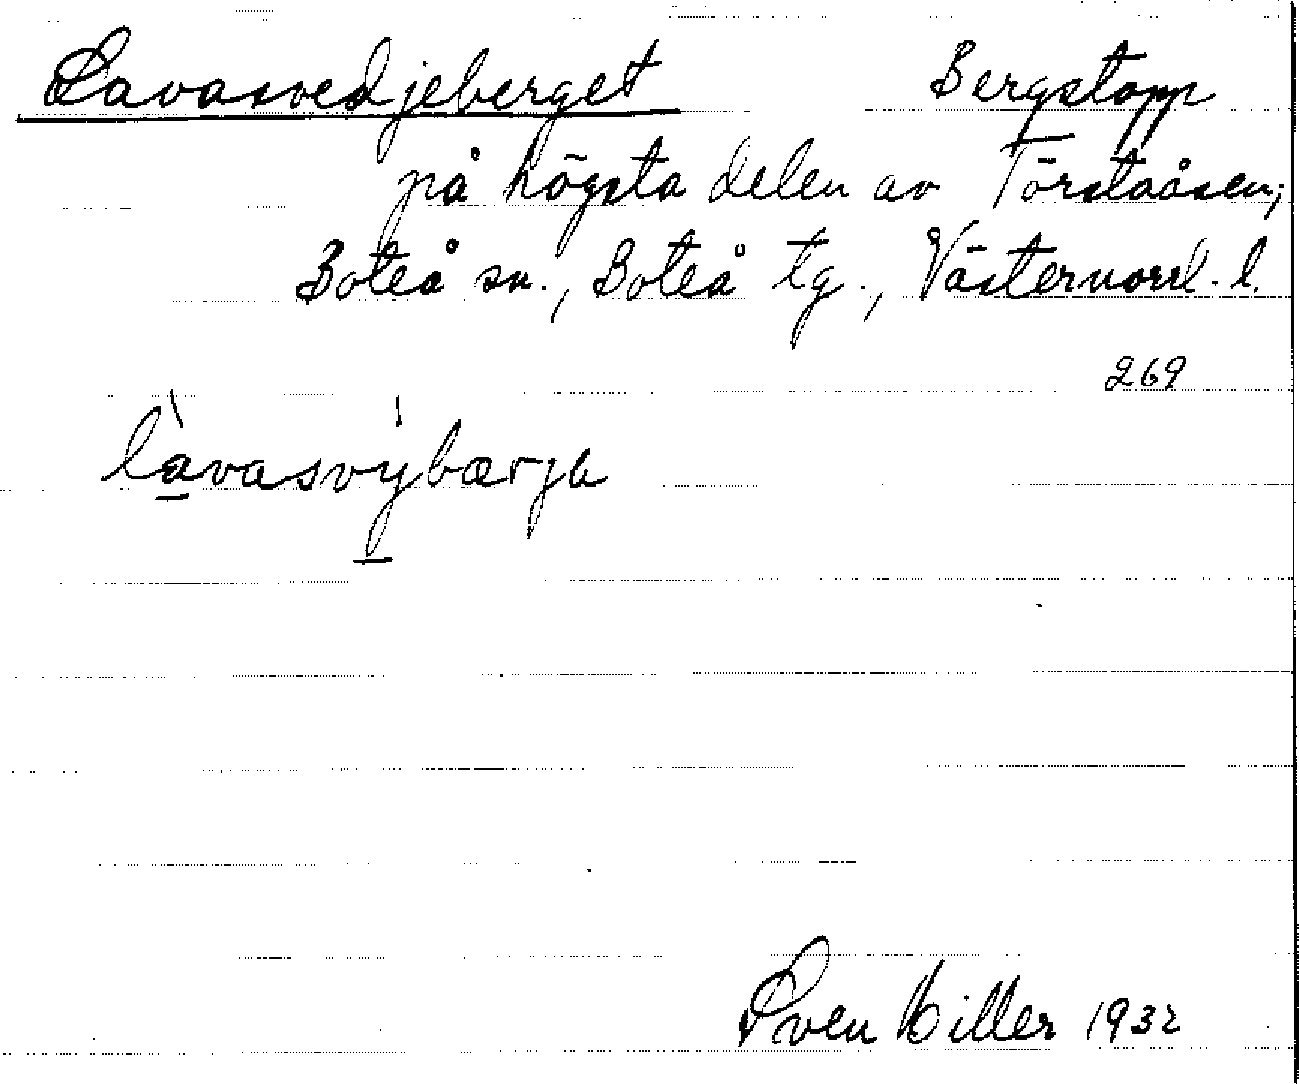 Lavasvedjeberget Bergstopp
på högsta delen av Törstaåsen;
Boteå sn., Boteå tg., Västernorrl. l.
269
làvasvýbærja
Sven Hiller 1932